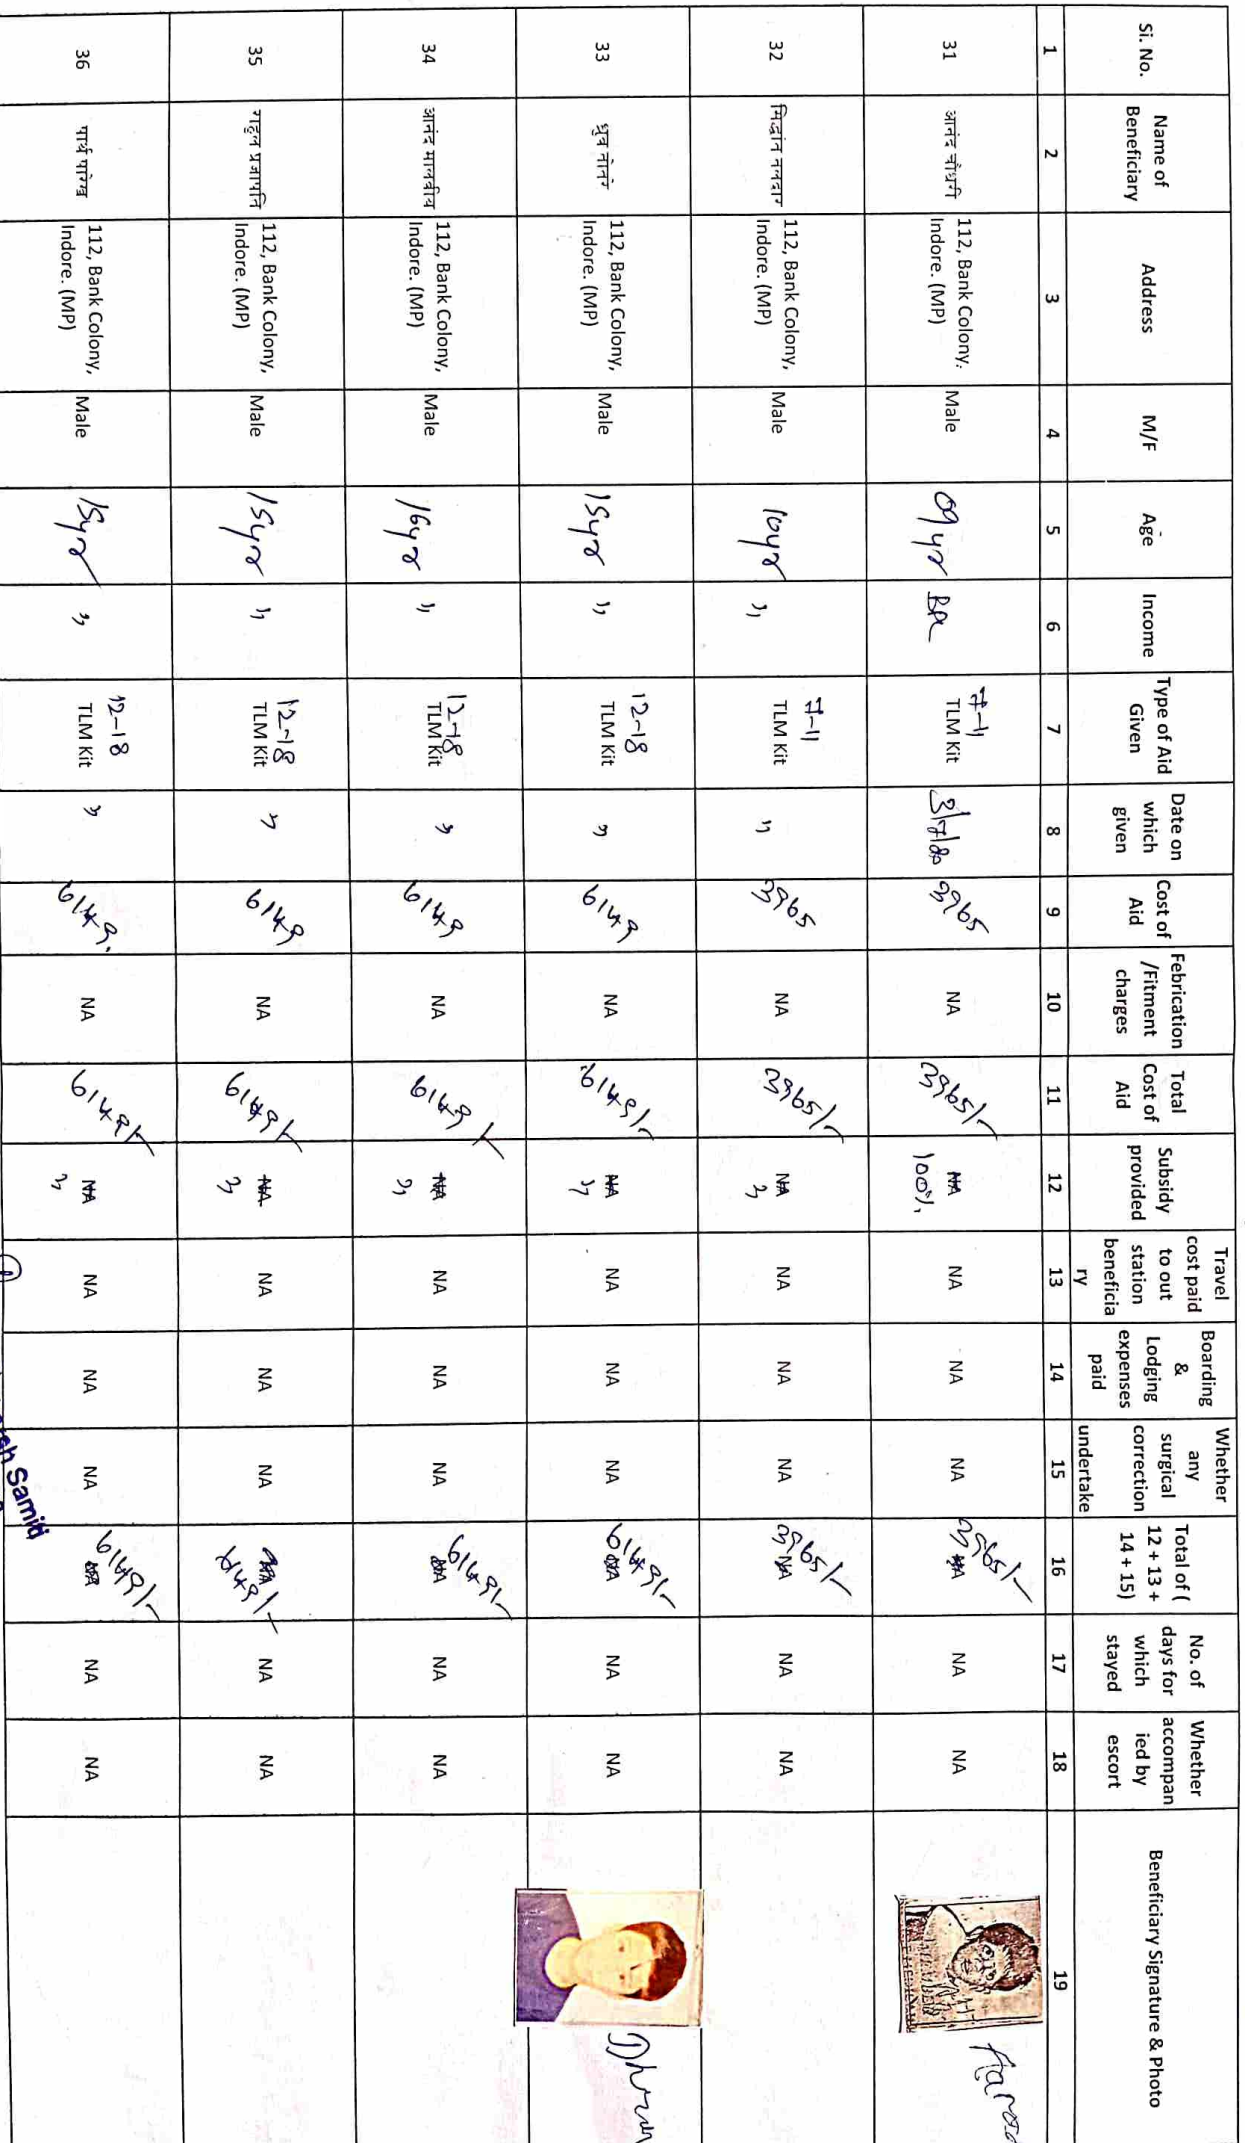 Si. No.
Name of
Beneficiary
Address
M/F
Age
Income
Type of Aid
Given
Date on
which
given
Cost of
Aid
Febrication
/Fitment
charges
Total
Cost of
Aid
Subsidy
provided
Travel
cost paid
to out
station
beneficia
ry
Boarding
&
Lodging
expenses
paid
Whether
any
surgical
correction
undertake
Total of (
12 + 13 +
14 + 15)
No. of
days for
which
stayed
Whether
accompan
ied by
escort
Beneficiary Signature & Photo
1 2 3 4 5 6 7 8 9 10 11 12 13 14 15 16 17 18 19
31
आनंद चौधरी
112, Bank Colony.
Indore. (MP)
Male
09 yr
7-11
TLM Kit
3965
NA
3965/-
NA
100%
NA
NA
NA
3965/-
NA
NA
NA
32
112, Bank Colony,
Indore. (MP)
Male
10yr
"
7-11
TLM Kit
"
3965
NA
3965/-
NA
"
NA
NA
NA
3965/-
NA
NA
NA
33
112, Bank Colony,
Indore. (MP)
Male
15yr
"
12-18
TLM Kit
"
6149
NA
6149/-
NA
"
NA
NA
NA
6149/-
NA
NA
NA
34
आनंद मालवीय
112, Bank Colony,
Indore. (MP)
Male
16yr
"
12-18
TLM Kit
"
6149
NA
6149/-
NA
"
NA
NA
NA
6149/-
NA
NA
NA
35
राहुल प्रजापति
112, Bank Colony,
Indore. (MP)
Male
15yr
"
12-18
TLM Kit
"
6149
NA
6149/-
NA
"
NA
NA
NA
6149/-
NA
NA
36
पार्थ पारेख
112, Bank Colony,
Indore. (MP)
Male
15yr
"
12-18
TLM Kit
"
6149.
NA
6149/-
NA
"
NA
NA
NA
6149/-
NA
NA
NA
Samiti